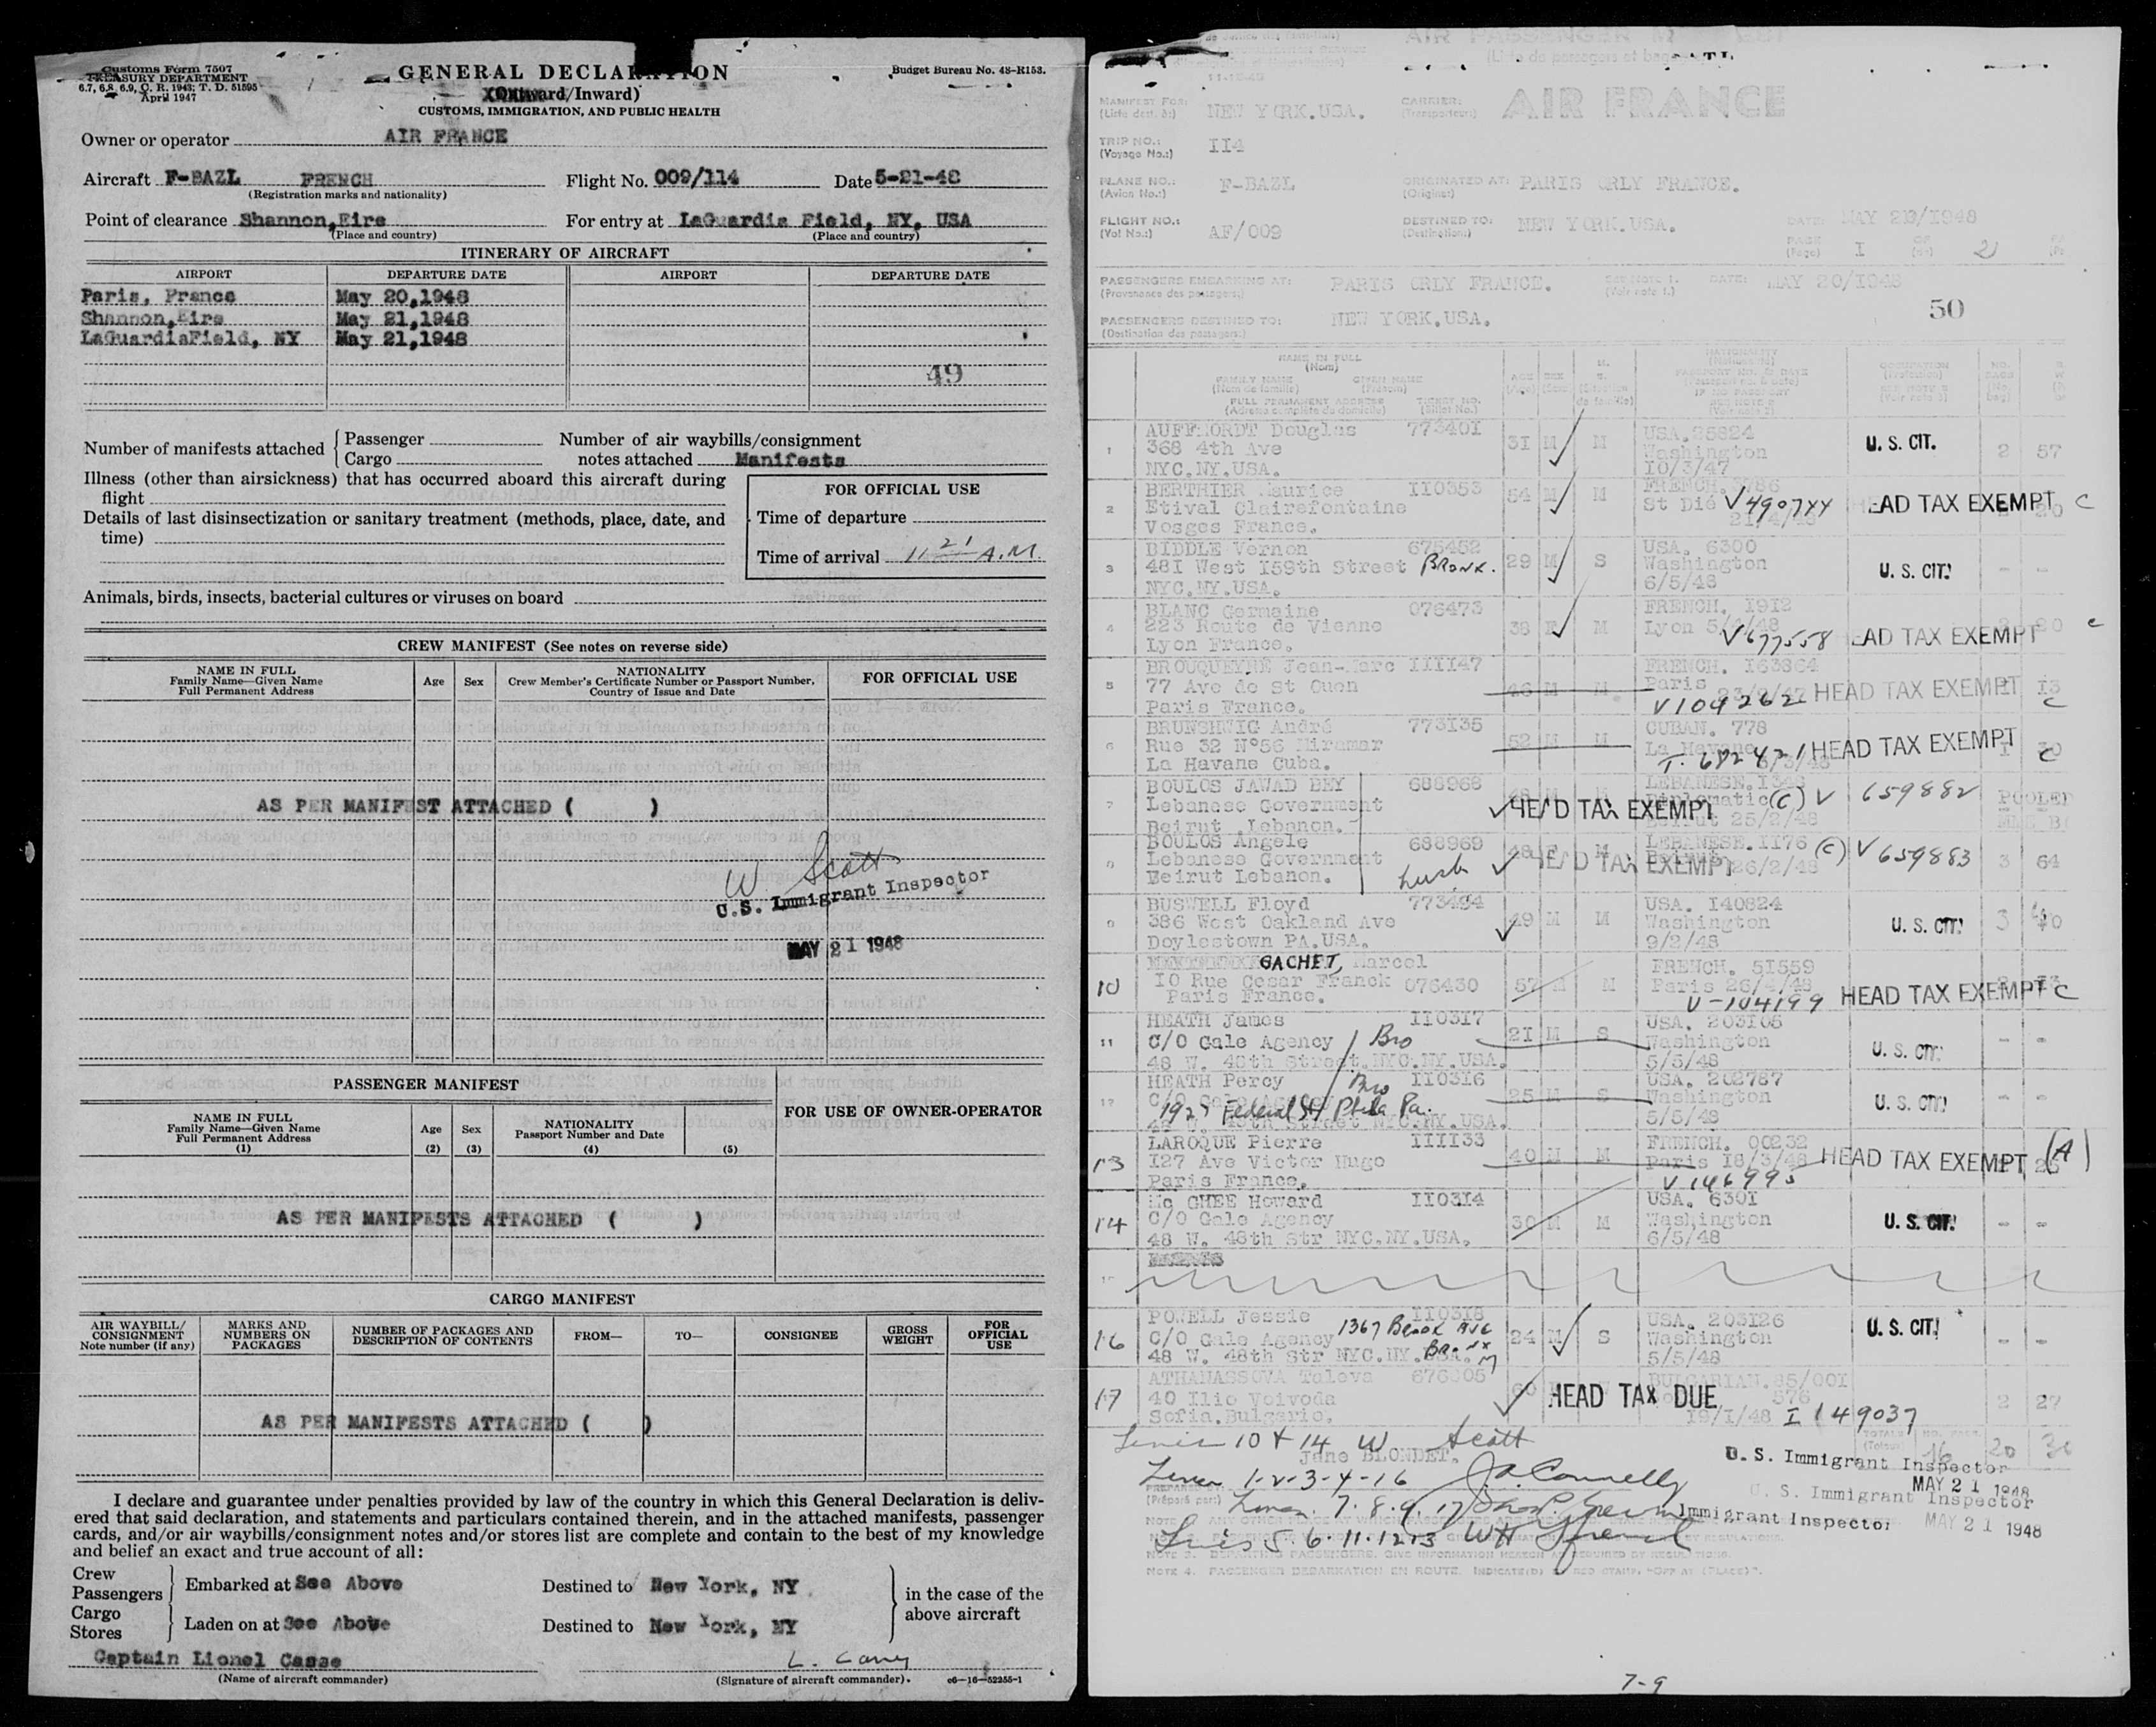 Customs Form 7507
TREASURY DEPARTMENT
6.7, 6.8, 6.9, C. R. 1943; T. D. 51595
April 1947
GENERAL DECLARATION
(Outward/Inward)
CUSTOMS, IMMIGRATION, AND PUBLIC HEALTH
Budget Bureau No. 48-R153.
Owner or operator AIR FRANCE
Aircraft F-BAZL FRENCH Flight No. 009/114 Date 5-21-48
(Registration marks and nationality)
Point of clearance Shannon,Eire For entry at LaGuardia Field, NY, USA
(Place and country) (Place and country)
ITINERARY OF AIRCRAFT
AIRPORT DEPARTURE DATE AIRPORT DEPARTURE DATE
Paris, France May 20,1948
Shannon,Eire May 21,1948
LaGuardiaField, NY May 21,1948
49
Number of manifests attached { Passenger Number of air waybills/consignment
Cargo notes attached Manifests
Illness (other than airsickness) that has occurred aboard this aircraft during
flight
FOR OFFICIAL USE
Details of last disinsectization or sanitary treatment (methods, place, date, and
time)
Time of departure
Time of arrival 11 21 A.M.
Animals, birds, insects, bacterial cultures or viruses on board
CREW MANIFEST (See notes on reverse side)
NAME IN FULL
Family Name—Given Name
Full Permanent Address
Age Sex
NATIONALITY
Crew Member's Certificate Number or Passport Number,
Country of Issue and Date
FOR OFFICIAL USE
AS PER MANIFEST ATTACHED ( )
W. Scott
U.S. Immigrant Inspector
MAY 21 1948
PASSENGER MANIFEST
NAME IN FULL
Family Name—Given Name
Full Permanent Address
(1)
Age
(2)
Sex
(3)
NATIONALITY
Passport Number and Date
(4)
(5)
FOR USE OF OWNER-OPERATOR
AS PER MANIFESTS ATTACHED ( )
CARGO MANIFEST
AIR WAYBILL/
CONSIGNMENT
Note number (if any)
MARKS AND
NUMBERS ON
PACKAGES
NUMBER OF PACKAGES AND
DESCRIPTION OF CONTENTS
FROM— TO— CONSIGNEE
GROSS
WEIGHT
FOR
OFFICIAL
USE
AS PER MANIFESTS ATTACHED ( )
I declare and guarantee under penalties provided by law of the country in which this General Declaration is deliv-
ered that said declaration, and statements and particulars contained therein, and in the attached manifests, passenger
cards, and/or air waybills/consignment notes and/or stores list are complete and contain to the best of my knowledge
and belief an exact and true account of all:
Crew
Passengers } Embarked at See Above Destined to New York, NY
Cargo
Stores } Laden on at See Above Destined to New York, NY
} in the case of the
above aircraft
Captain Lionel Casse
(Name of aircraft commander) (Signature of aircraft commander). c6—16—52255-1
AIR PASSENGER
(Liste de passagers et
MANIFEST FOR: NEW YORK.USA. CARRIER: AIR FRANCE
(Transporteur:)
TRIP NO.: II4
(Voyage No.:)
PLANE NO.: F-BAZL ORIGINATED AT: PARIS ORLY FRANCE.
(Avion No.:) (Origine:)
FLIGHT NO.: AF/009 DESTINED TO: NEW YORK.USA. DATE:
(Vol No.:) (Destination:) PAGE I OF 2
PASSENGERS EMBARKING AT: PARIS ORLY FRANCE. SEE NOTE 1. DATE: MAY 20/1948
(Provenance des passagers:) (Voir note 1.)
50
PASSENGERS DESTINED TO: NEW YORK.USA.
(Destination des passagers:)
NAME IN FULL
(Nom)
FAMILY NAME GIVEN NAME
(Nom de famille) (Prénom)
FULL PERMANENT ADDRESS TICKET NO.
(Adresse complète du domicile) (Billet No.)
1 AUFFMORDT Douglas 773401 31 M M USA.25824 U. S. CIT. 2 57
368 4th Ave Washington
NYC.NY.USA. 10/3/47
2 BERTHIER Maurice II0353 54 M M FRENCH. HEAD TAX EXEMPT C
Etival Clairefontaine St Dié V490744
Vosges France.
3 BIDDLE Vernon 675452 29 M S USA. 6300 U. S. CIT. - -
481 West I59th Street BRONX. Washington
NYC.NY.USA. 6/5/48
4 BLANC Germaine 076473 38 F M FRENCH. I9I2 HEAD TAX EXEMPT c
223 Route de Vienne Lyon V677558
Lyon France.
5 BROUQUEYRE Jean-Marc IIII47 46 M M FRENCH. I63864 HEAD TAX EXEMPT I3
77 Ave de St Ouen Paris V109262 C
Paris France.
6 BRUNSHWIG André 773I35 52 M M CUBAN. 778 HEAD TAX EXEMPT
Rue 32 N°56 Miramar La Havane T. 682421 C
La Havane Cuba.
7 BOULOS JAWAD BEY 688968 LEBANESE.
Lebanese Government HEAD TAX EXEMPT Diplomatic (C) V 659882 POOLED
Beirut Lebanon. Beirut 25/2/48
8 BOULOS Angele 688969 48 F M LEBANESE.II76 (C) V 659883 3 64
Lebanese Government HEAD TAX EXEMPT 26/2/48
Beirut Lebanon.
9 BUSWELL Floyd 773494 49 M M USA. I40824 U. S. CIT. 3
386 West Oakland Ave Washington
Doylestown PA.USA. 9/2/48
10 GACHET, Marcel 57 M M FRENCH. 51559 HEAD TAX EXEMPT C
I0 Rue Cesar Franck 076430 Paris 26/4/48
Paris France. V-104199
11 HEATH James II03I7 21 M S USA. 203I05 U. S. CIT. - -
C/O Gale Agency Bro Washington
48 W. 48th Street.NYC.NY.USA. 5/5/48
12 HEATH Percy Bro II03I6 25 M S USA. 202787 U. S. CIT. - -
C/O Gale Agency Washington
1927 Federal St Phila Pa.
48 W. 48th Street NYC.NY.USA. 5/5/48
13 LAROQUE Pierre IIII33 40 M M FRENCH. 00232 HEAD TAX EXEMPT (A)
I27 Ave Victor Hugo Paris I8/3/48
Paris France. V146995
14 Mc GHEE Howard II03I4 30 M M USA. 630I U. S. CIT. - -
C/O Gale Agency Washington
48 W. 48th Str NYC.NY.USA. 6/5/48
16 POWELL Jessie II03I8 24 M S USA. 203I26 U. S. CIT. - -
C/O Gale Agency 1367 Brook Ave Washington
48 W. 48th Str NYC.NY.USA. Bronx 5/5/48
17 ATHANASSOVA Taleva 676005 BULGARIAN.
40 Ilio Voivoda HEAD TAX DUE 2 27
Sofia.Bulgario. I9/I/48 I 149037
Lines 10 & 14 W Scott
Jane BLONDET. U. S. Immigrant Inspector
Lines 1-2-3-4-16 MAY 21 1948
U. S. Immigrant Inspector
Lines 7.8.9.17 Immigrant Inspector MAY 21 1948
Lines 5.6.11.12.13
NOTE 4. PASSENGER DEBARKATION EN ROUTE. INDICATE(D) BY RED STAMP, "OFF AT (PLACE)".
7-9